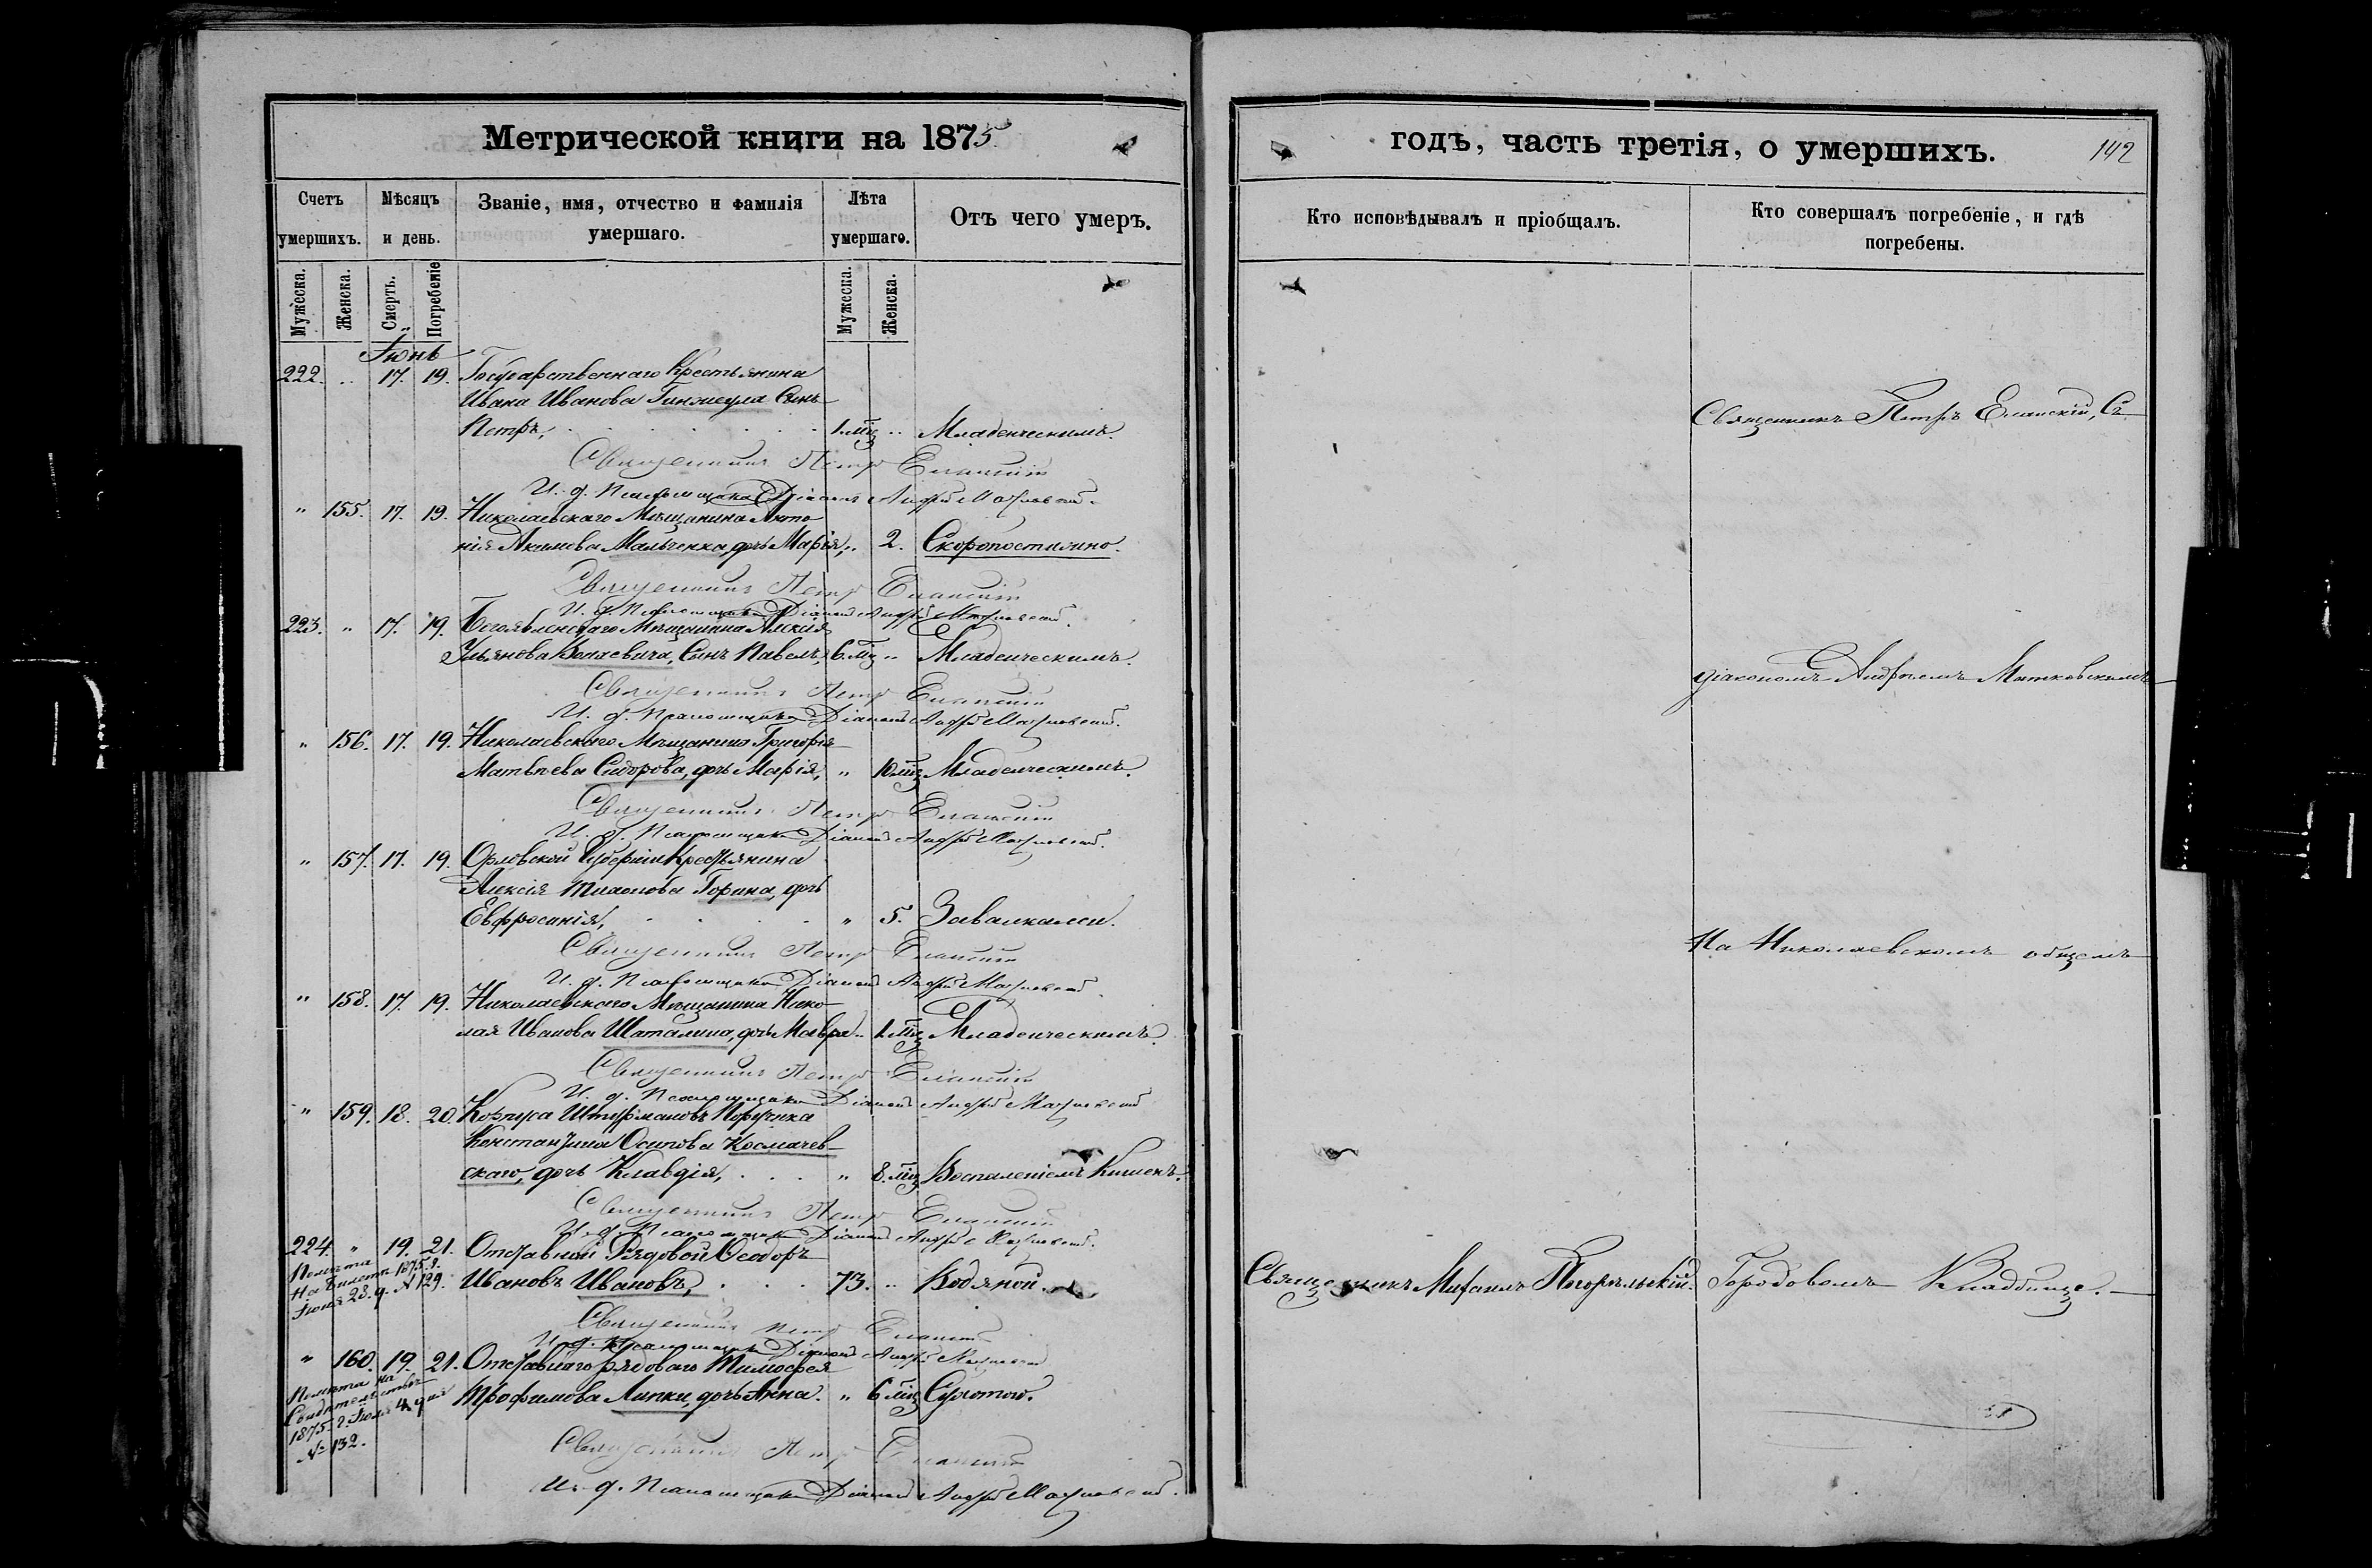 Метрической книги на 1875
Счетъ умершихъ.
Мѣсяцъ и день.
Званіе, имя, отчество и фамилія умершаго.
Лѣта умершаго.
Отъ чего умеръ.
Мужеска.
Женска.
Смерть.
Погребеніе
Мужеска.
Женска.
Іюнь
222. " 17. 19. Государственнаго Крестьянина
Ивана Иванова Гинжула Сынъ
Петръ, 1 мц " Младенческимъ.
Священникъ Петръ Еланскій
И. д. Псаломщика Діаконъ Андрей
" 155. 17. 19. Николаевскаго Мѣщанина Анто
нія Акимова Мальченка, дочь Марія, " 2. Скоропостижно.
Священникъ Петръ Еланскій
И. д. Псаломщика Діаконъ Андрей
223. " 17. 19. Богоявленскаго Мѣщанина Алексія
Ульянова сынъ Павелъ, 6 мц " Младенческимъ.
Священникъ Петръ Еланскій
И. д. Псаломщика Діаконъ Андрей
" 156. 17. 19. Николаевскаго Мѣщанина Григорія
Матвѣева Сидорова, дочь Марія, " 10 мц Младенческимъ.
Священникъ Петръ Еланскій
И. д. Псаломщика Діаконъ Андрей
" 157. 17. 19. Орловской Губерніи Крестьянина
Алексія Тихонова Горина, дочь
Евфросинія, " 5. Завалками.
Священникъ Петръ Еланскій
И. д. Псаломщика Діаконъ Андрей
" 158. 17. 19. Николаевскаго Мѣщанина Нико
лая Иванова Шаталина, дочь Мавра " 1 мц Младенческимъ.
Священникъ Петръ Еланскій
И. д. Псаломщика Діаконъ Андрей
" 159. 18. 20. Корпуса Штурмановъ Поручика
Константина Осипова Космачев-
скаго, дочь Клавдія, " 8 мц Воспаленіемъ Кишекъ.
Священникъ Петръ Еланскій
И. д. Псаломщика Діаконъ Андрей
224. " 19. 21. Отставной Рядовой Ѳеодоръ
Ивановъ Ивановъ, 73. " Водяной.
Помѣта
На Билетѣ 1875 г.
Іюня 23 д. № 129.
Священникъ Петръ Еланскій
И. д. Псаломщика Діаконъ Андрей
" 160. 19. 21. Отставнаго рядоваго Тимофея
Трофимова Липки, дочь Анна. " 6 мц Сухотою.
Помѣта на
Свидѣтельствѣ
1875 г. Іюля 4 дня
№ 132.
Священникъ Петръ Еланскій
И. д. Псаломщика Діаконъ Андрей
годъ, часть третія, о умершихъ.
142
Кто исповѣдывалъ и пріобщалъ.
Кто совершалъ погребеніе, и гдѣ погребены.
Священникъ Петръ Еланскій, Съ
діакономъ Андреемъ
На Николаевскомъ общемъ
Священникъ Михаилъ Погорѣльскій.
Городовомъ Кладбище.